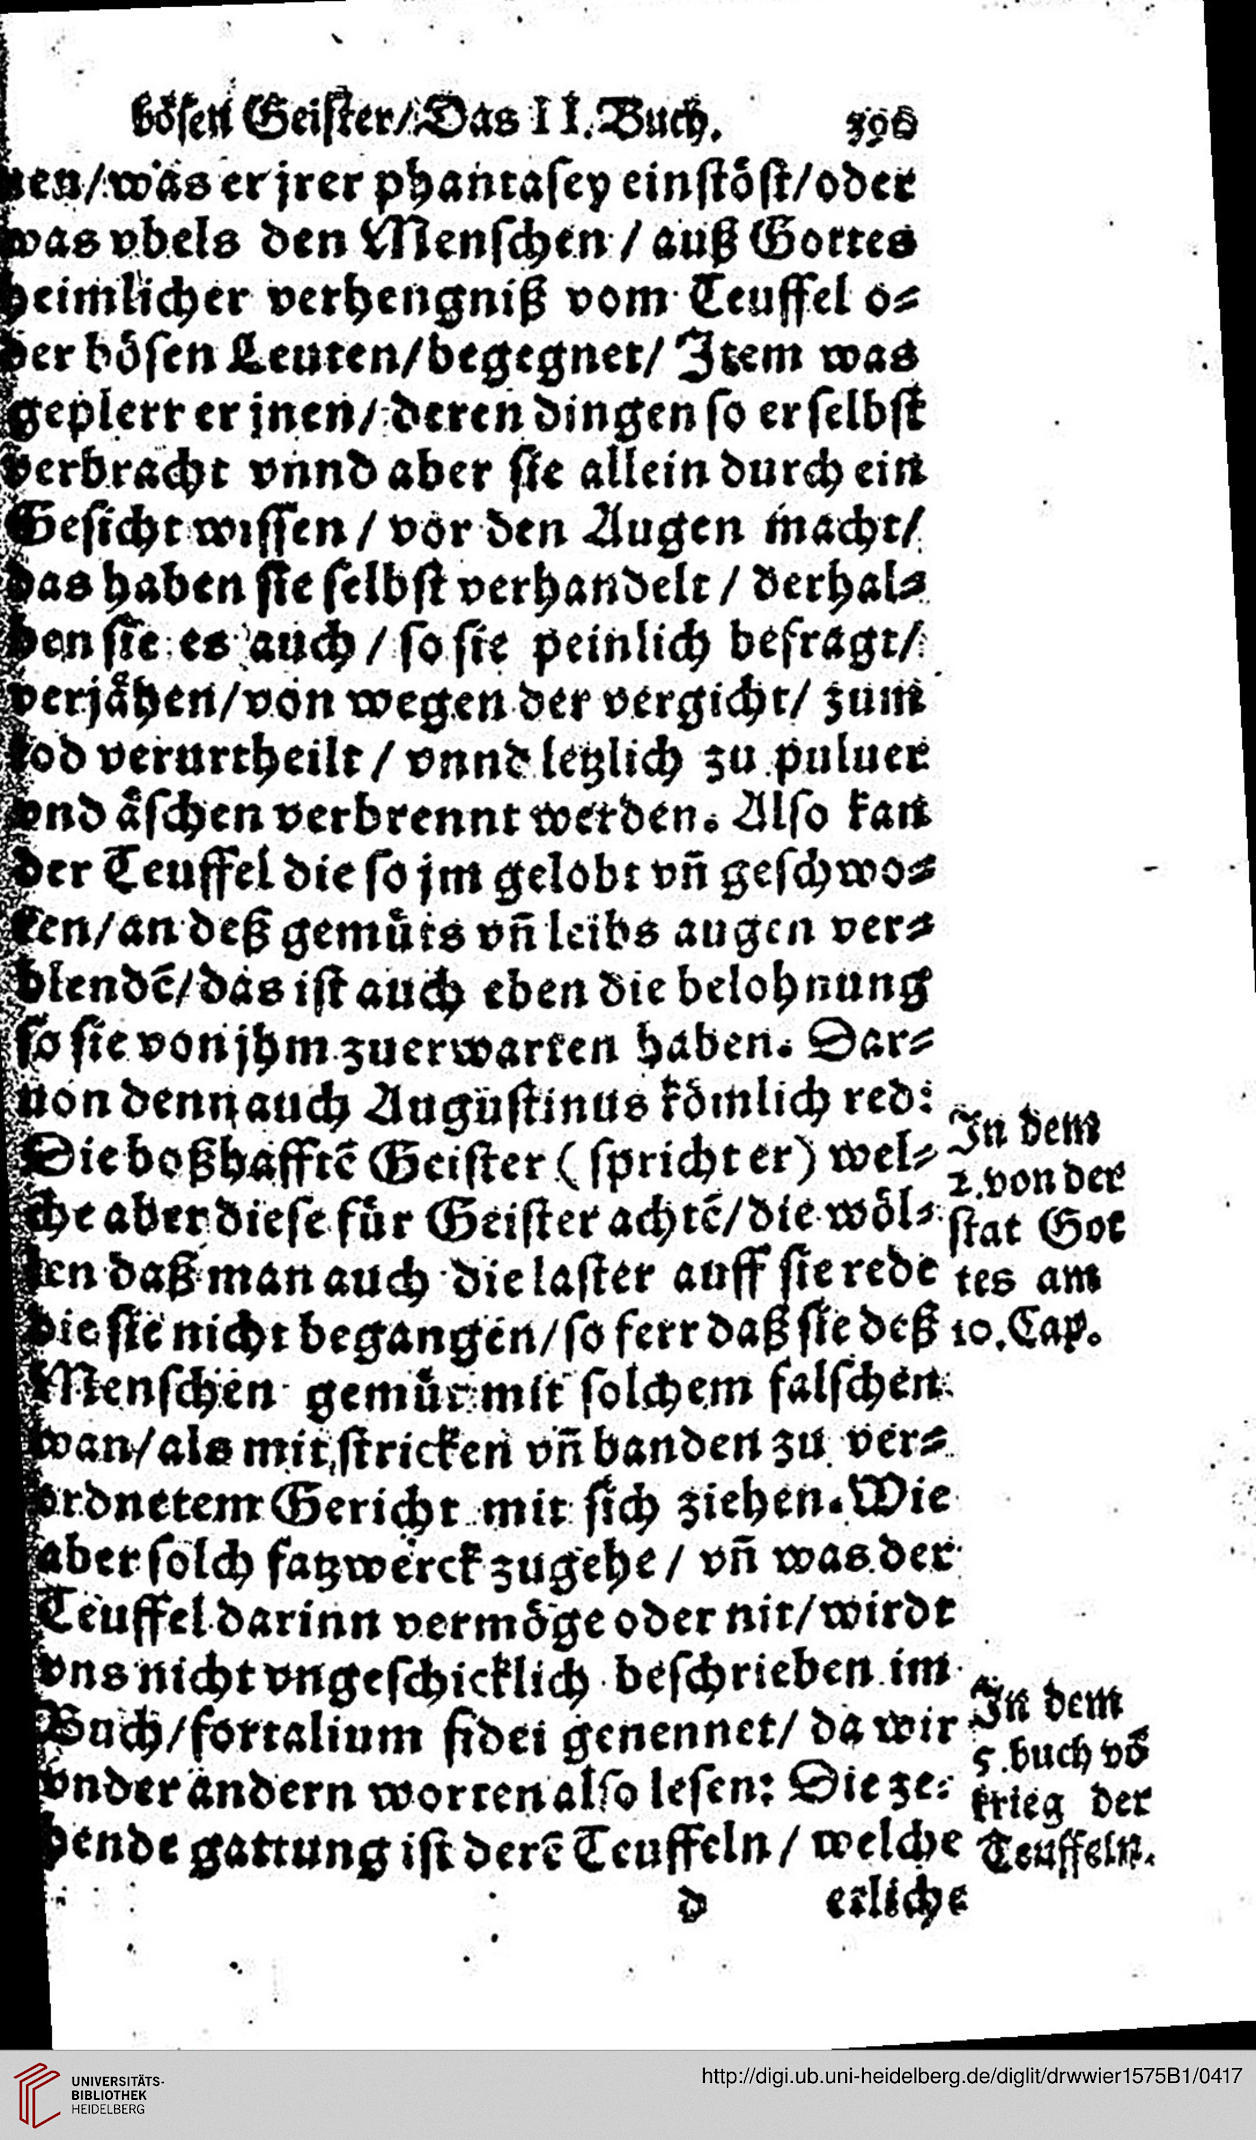 bösen Geister/Das II. Buch. 396
nen/was er jrer phantasey einstöst/oder
was vbels den Menschen / auß Gottes
heimlicher verhengniß vom Teuffel o⸗
der bösen Leuten/begegnet/ Item was
geplerr er jnen/ deren dingen so er selbst
verbracht vnnd aber sie allein durch ein
Gesicht wissen / vor den Augen macht/
das haben sie selbst verhandelt / derhal⸗
ben sie es auch / so sie peinlich befragt/
verjähen/von wegen der vergicht/ zum
tod verurtheilt / vnnd letzlich zu puluer
vnd äschen verbrennt werden. Also kan
der Teuffel die so jm gelobt vn̄ geschwo⸗
ren/an deß gemüts vn̄ leibs augen ver⸗
blendē/das ist auch eben die belohnung
so sie von jhm zuerwarten haben. Dar⸗
uon denn auch Augustinus kömlich red:
Die boßhafftē Geister (spricht er) wel⸗
che aber diese für Geister achtē/die wöl⸗
len daß man auch die laster auff sie rede
die sie nicht begangen/so ferr daß sie deß
Menschen gemüt mit solchem falschen
wan/als mit stricken vn̄ banden zu ver⸗
ordnetem Gericht mit sich ziehen. Wie
aber solch fatzwerck zugehe / vn̄ was der
Teuffel darinn vermöge oder nit/wirdt
vns nicht vngeschicklich beschrieben im
Buch/fortalium fidei genennet/ da wir
vnder andern worten also lesen: Die ze⸗
hende gattung ist derē Teuffeln / welche
d erliche
In dem
2. von der
stat Got
tes am
10. Cap.
In dem
5. buch vō
krieg der
Teuffeln.
UNIVERSITÄTS-
BIBLIOTHEK
HEIDELBERG
http://digi.ub.uni-heidelberg.de/diglit/drwwier1575B1/0417